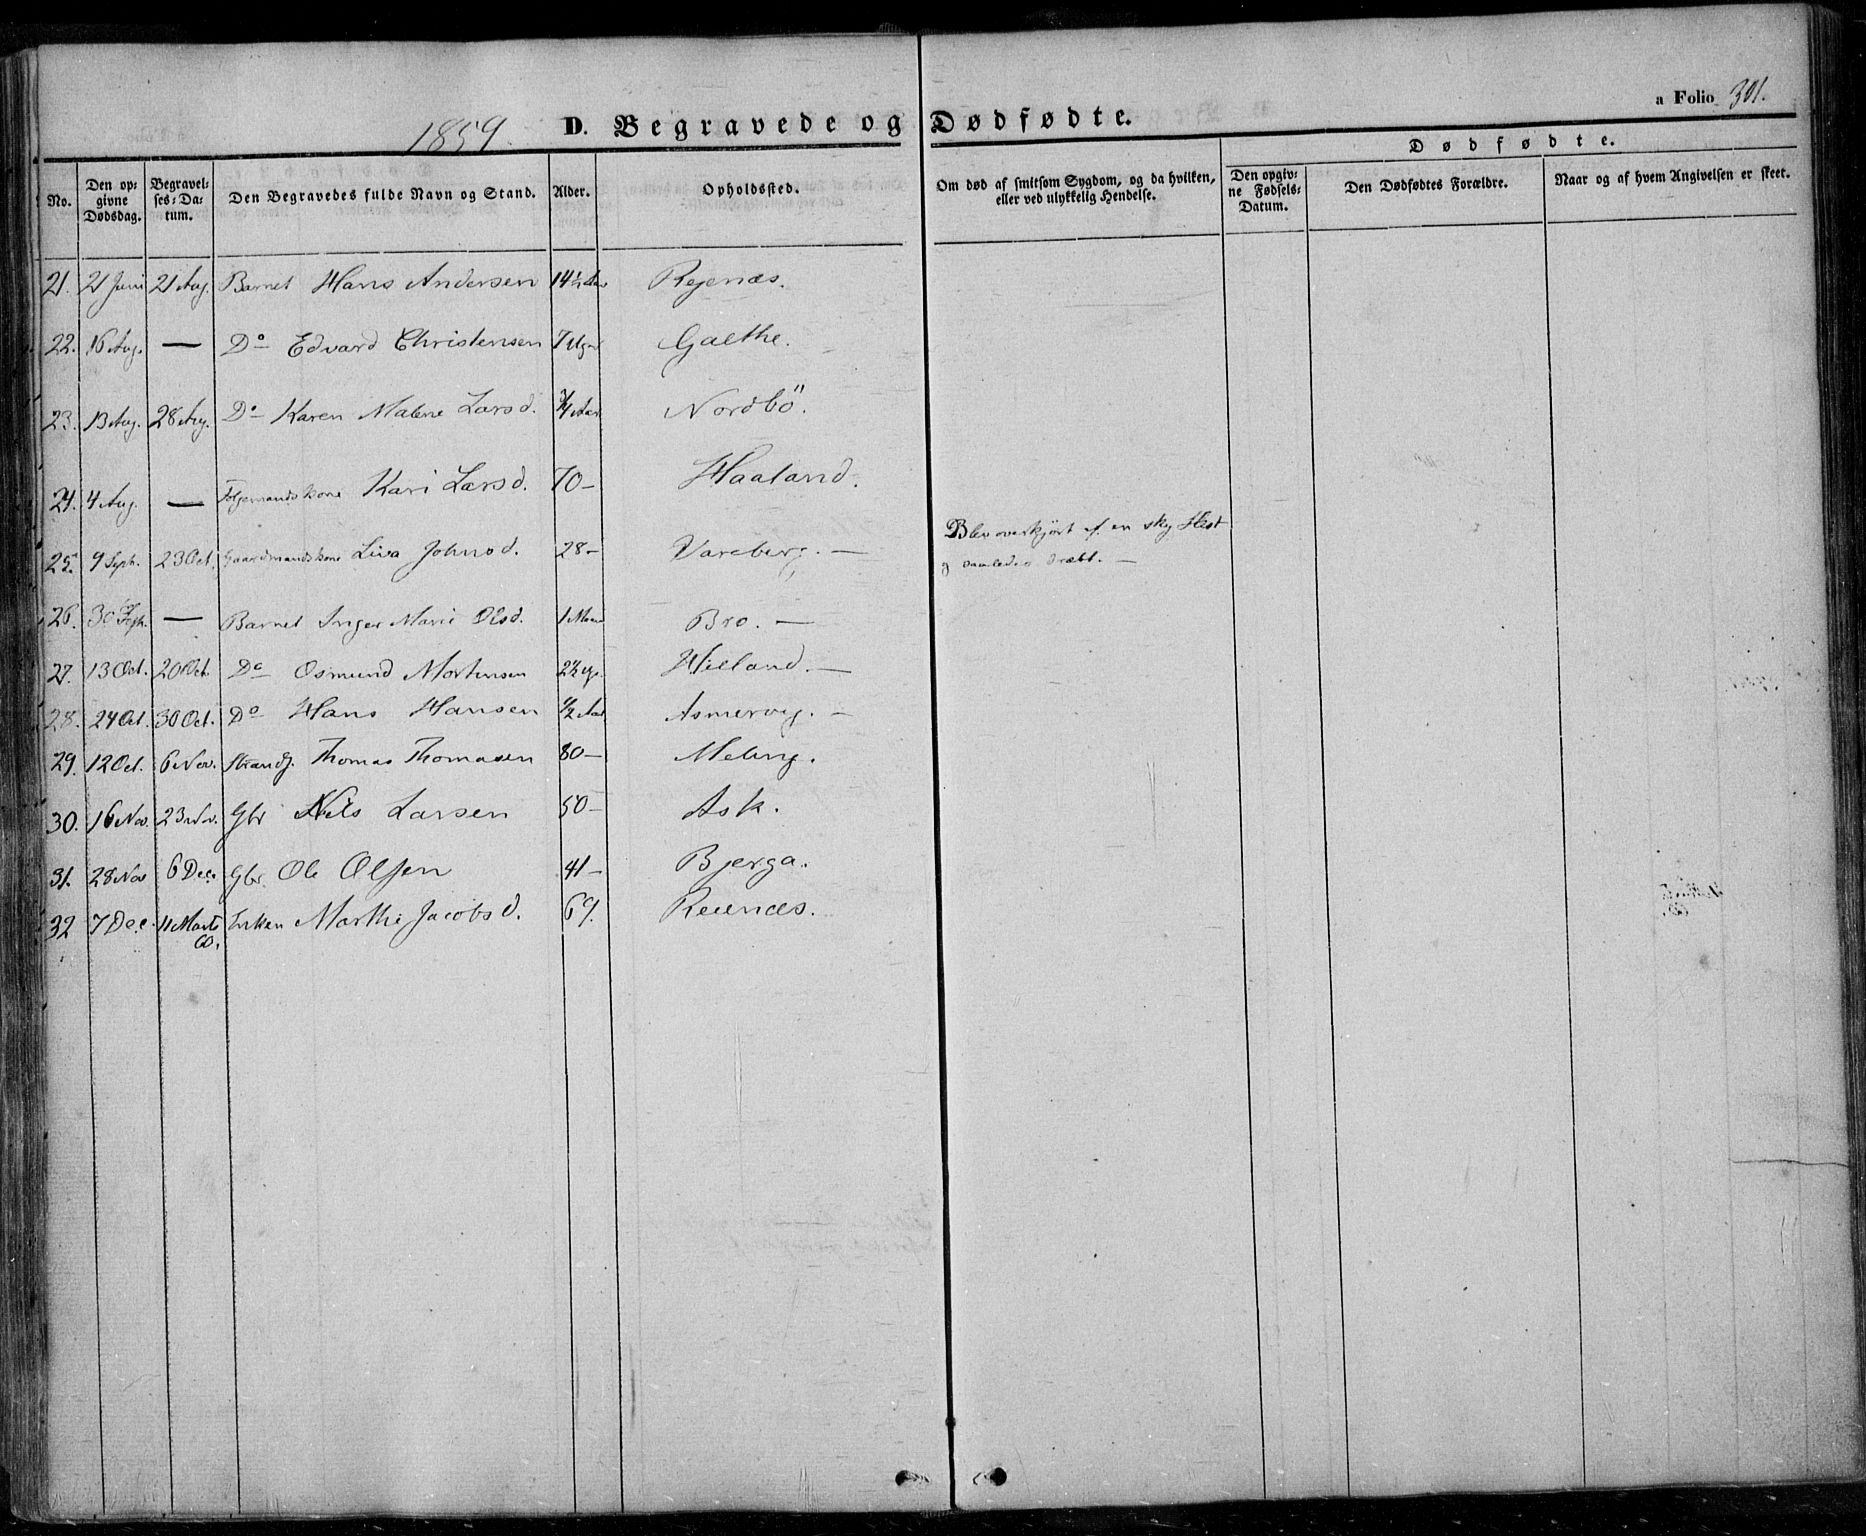 a Folio 301.
1859. D. Begravede og Dødfødte.
Dødfødte.
No. Den opgivne Dødsdag. Begravelses-Datum. Den Begravedes fulde Navn og Stand. Alder. Opholdssted. Om død af smitsom Sygdom, og da hvilken, eller ved ulykkelig Hendelse. Den opgivne Fødsels-Datum. Den Dødfødtes Forældre. Naar og af hvem Angivelsen er skeet.
21. 21 Juni 21 Aug. Barnet Hans Andersen 14½ Aar Rejenæs.
22. 16 Aug. — Do Edvard Christensen 7 Uger Galthe.
23. 13 Aug. 28 Aug. Do Karen Malene Larsd. ¾ Aar Nordbö.
24. 4 Aug. — Kari Larsd. 70 — Haaland.
25. 9 Sept. 23 Oct. Gaardmandskone Liva Johnsd. 28 — Vareberg. — Blev overkjört af en sky Hest
og saaledes dræbt. —
26. 30 Sept. — Barnet Inger Marie Olsd. 1 Maan Bro. —
27. 13 Oct. 20 Oct. Do Osmund Mortensen Hilland. —
28. 24 Oct. 30 Oct. Do Hans Hansen ½ Aar Asmervig. —
29. 12 Oct. 6 Nov. Strands. Thomas Thomasen 80 — Meling.
30. 16 Nov. 23 Nov. Gbr Nils Larsen 50 — Ask.
31. 28 Nov 6 Dec. Gbr. Ole Olsen 41 — Bjerga.
32 7 Dec. 11 Marts 60. Enken Marthe Jacobsd. 69. Reienæs.